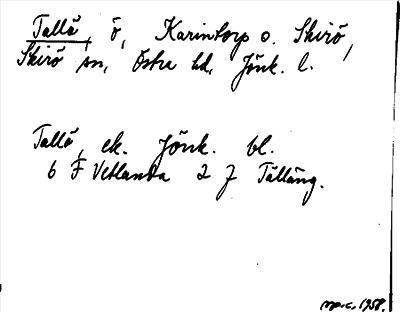 Tallö, ö, Karintorp o. Skirö,
Skirö sn, Östra hd, Jönk. l.
Tallö, ek. Jönk. bl.
6 F Vetlanda 2 j Tälläng.
1958.